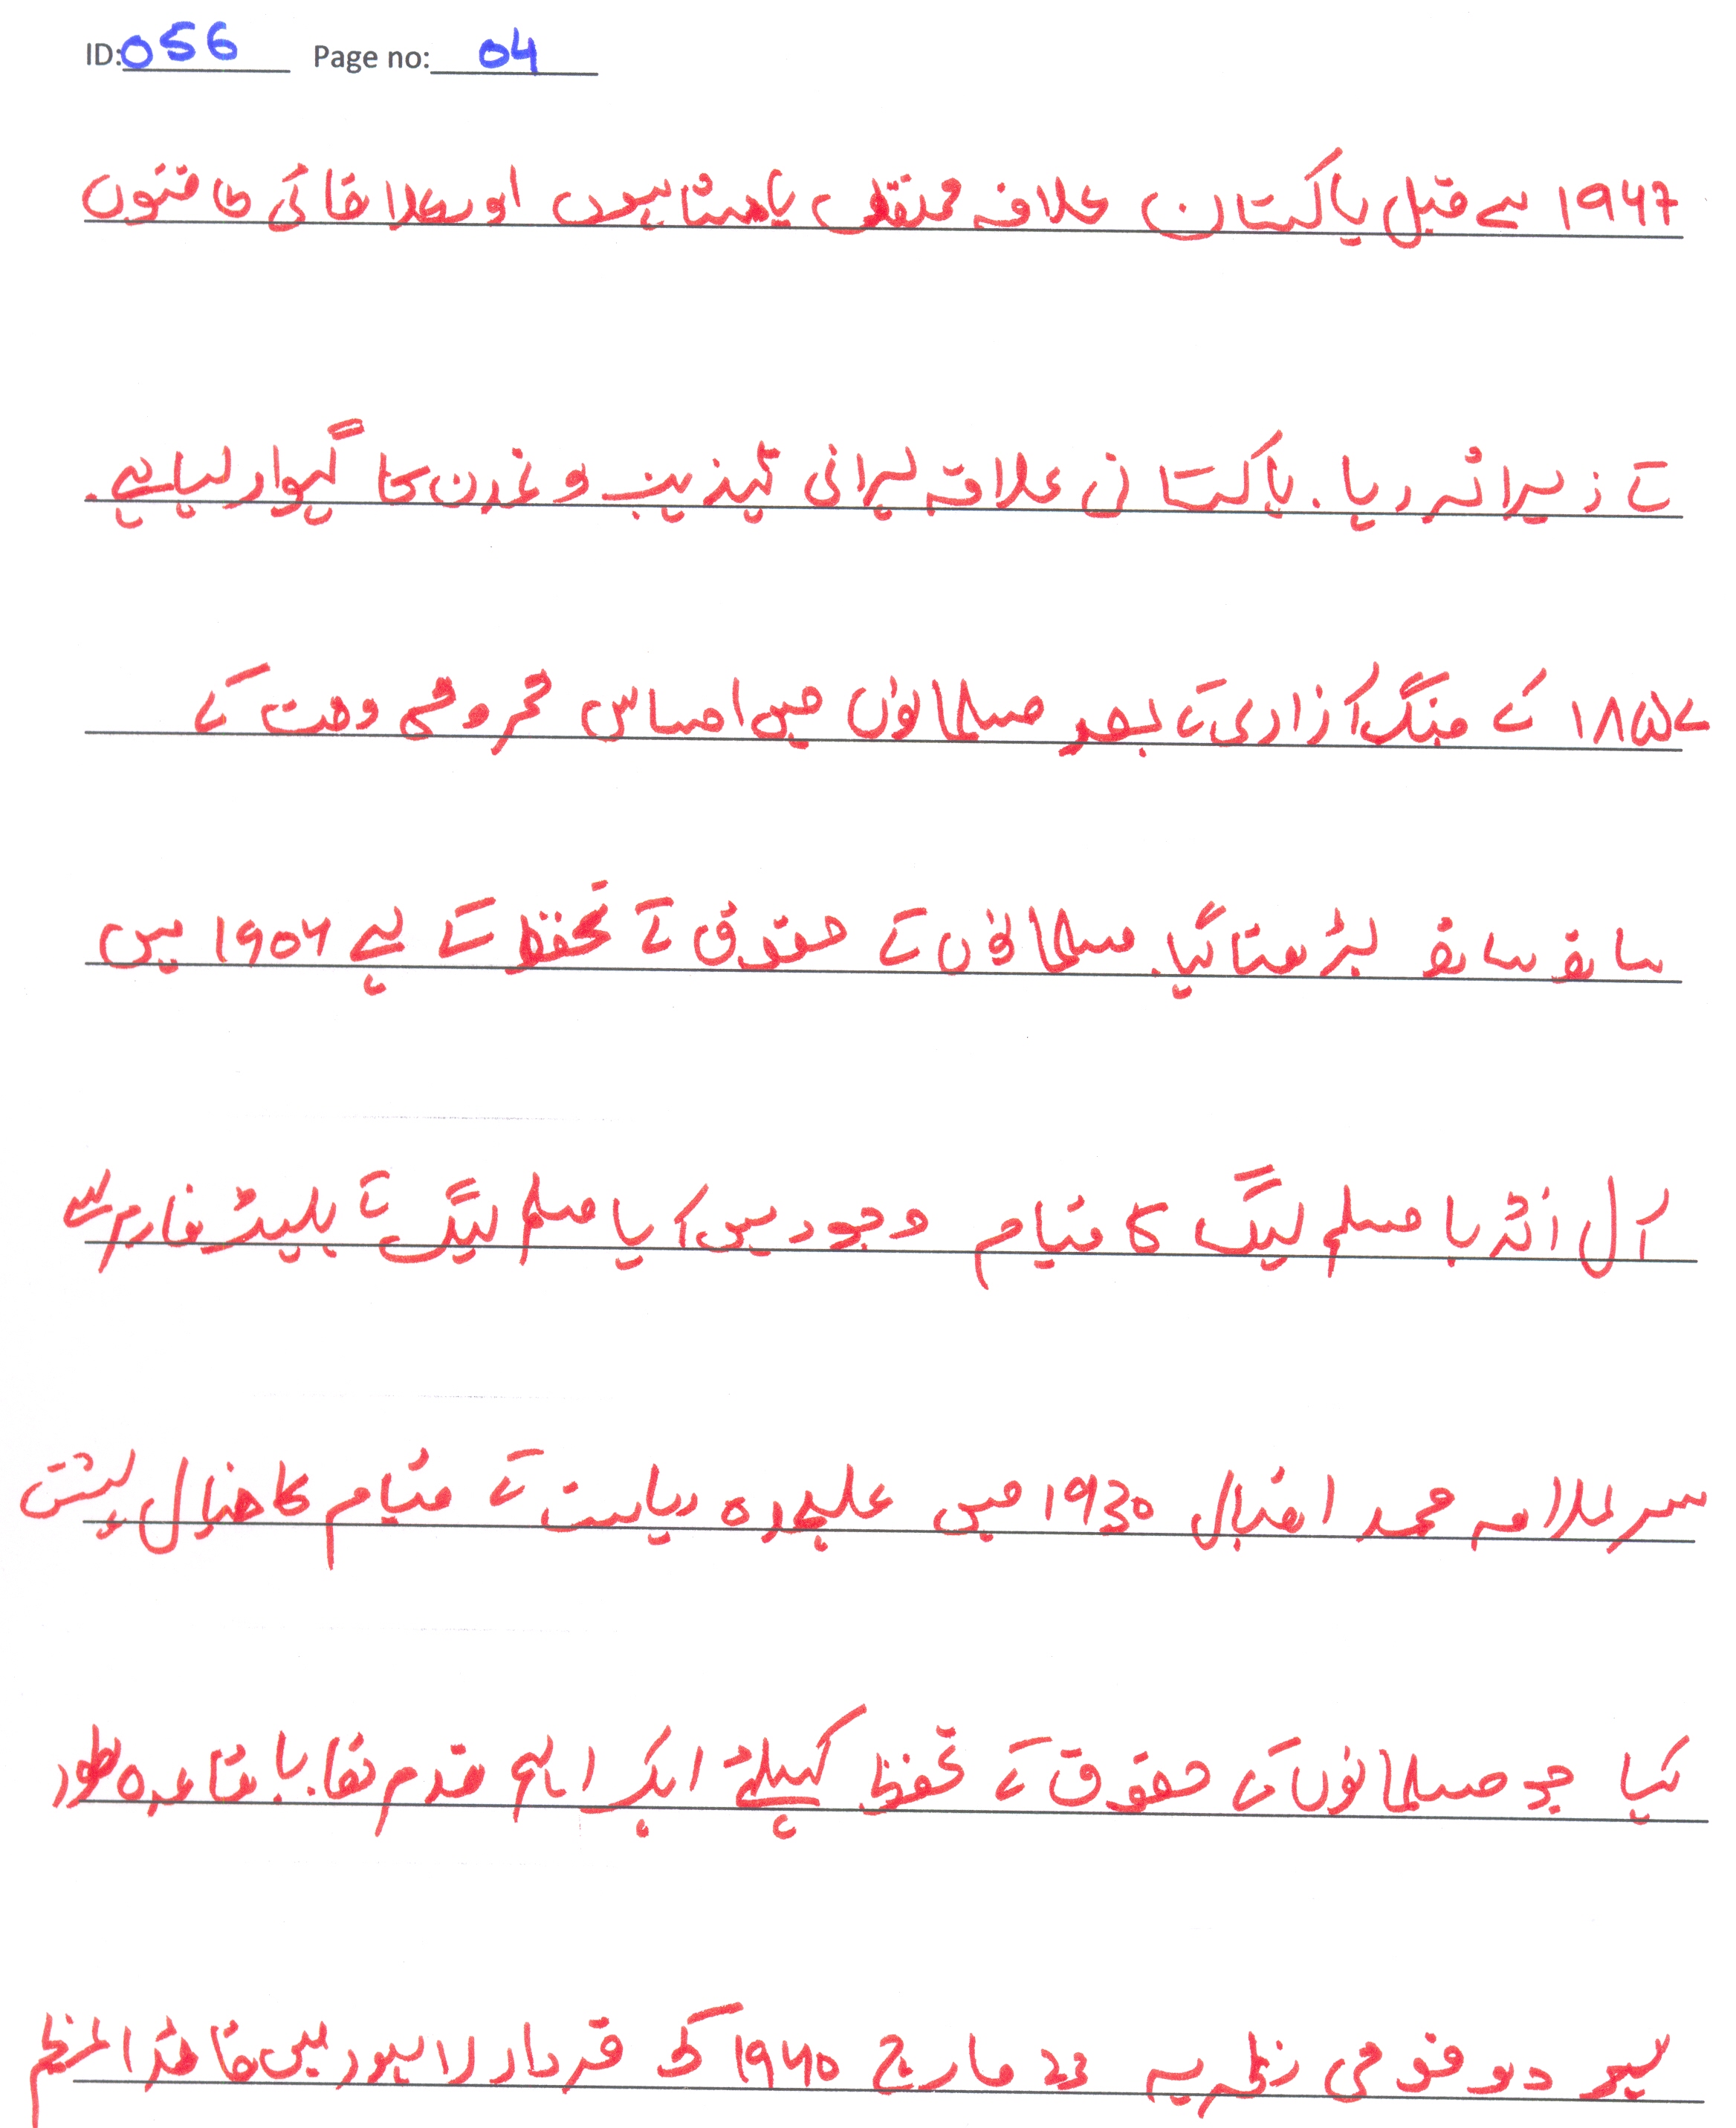 ID: 056 Page no: 04
1947 سے قبل پاکستان علاقہ مختلف بادشاہوں اور علاقائی طاقتوں
کے زیراثر رہا۔ پاکستانی علاقہ پرانی تہذیب و تمدن کا گہوارہ رہا ہے۔
۱۸۵۷ کے جنگ آزادی کے بعد مسلمانوں میں احساس محرومی وقت کے
ساتھ ساتھ بڑھتا گیا۔ مسلمانوں کے حقوق کے تحفظ کے لیے 1906 میں
آل انڈیا مسلم لیگ کا قیام وجود میں آیا مسلم لیگ کے پلیٹ فارم سے
سر علامہ محمد اقبال 1930 میں علیحدہ ریاست کے قیام کا خیال پیش
کیا جو مسلمانوں کے حقوق کے تحفظ کیلئے ایک اہم قدم تھا۔ باقاعدہ طور
پر دو قومی نظریہ 23 مارچ 1940 کے قرداد لاہور میں قائد اعظم